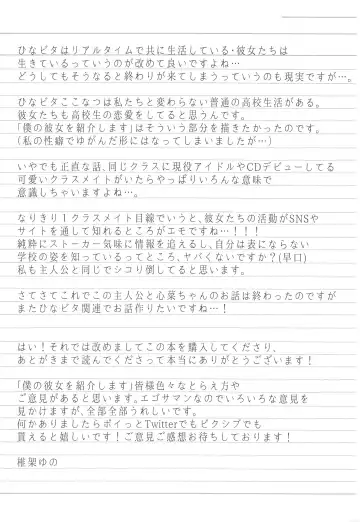 ひなビタはリアルタイムで共に生活している・彼女たちは
生きているっていうのが改めて良いですよね…
どうしてもそうなると終わりが来てしまうっていうのも現実ですが…。
ひなビタここなつは私たちと変わらない普通の高校生活がある。
彼女たちも高校生の恋愛をしてると思うんです。
「僕の彼女を紹介します」はそういう部分を描きたかったのです。
(私の性癖でゆがんだ形にはなってしまいましたが…)
いやでも正直な話、同じクラスに現役アイドルやCDデビューしてる
可愛いクラスメイトがいたらやっぱりいろんな意味で
意識しちゃいますよね…。
なりきり1クラスメイト目線でいうと、彼女たちの活動がSNSや
サイトを通して知れるところがエモですね…!!!
純粋にストーカー気味に情報を追えるし、自分は表にならない
学校の姿を知っているってところ、ヤバくないですか?(早口)
私も主人公と同じでシコり倒してると思います。
さてさてこれでこの主人公と心菜ちゃんのお話は終わったのですが
またひなビタ関連でお話作りたいですね…!
はい!それでは改めましてこの本を購入してくださり、
あとがきまで読んでくださって本当にありがとうございます!
「僕の彼女を紹介します」皆様色々なとらえ方や
ご意見があると思います。エゴサマンなのでいろいろな意見を
見かけますが、全部全部うれしいです。
何かありましたらポイっとTwitterでもピクシブでも
貰えると嬉しいです!ご意見ご感想お待ちしております!
椎架ゆの